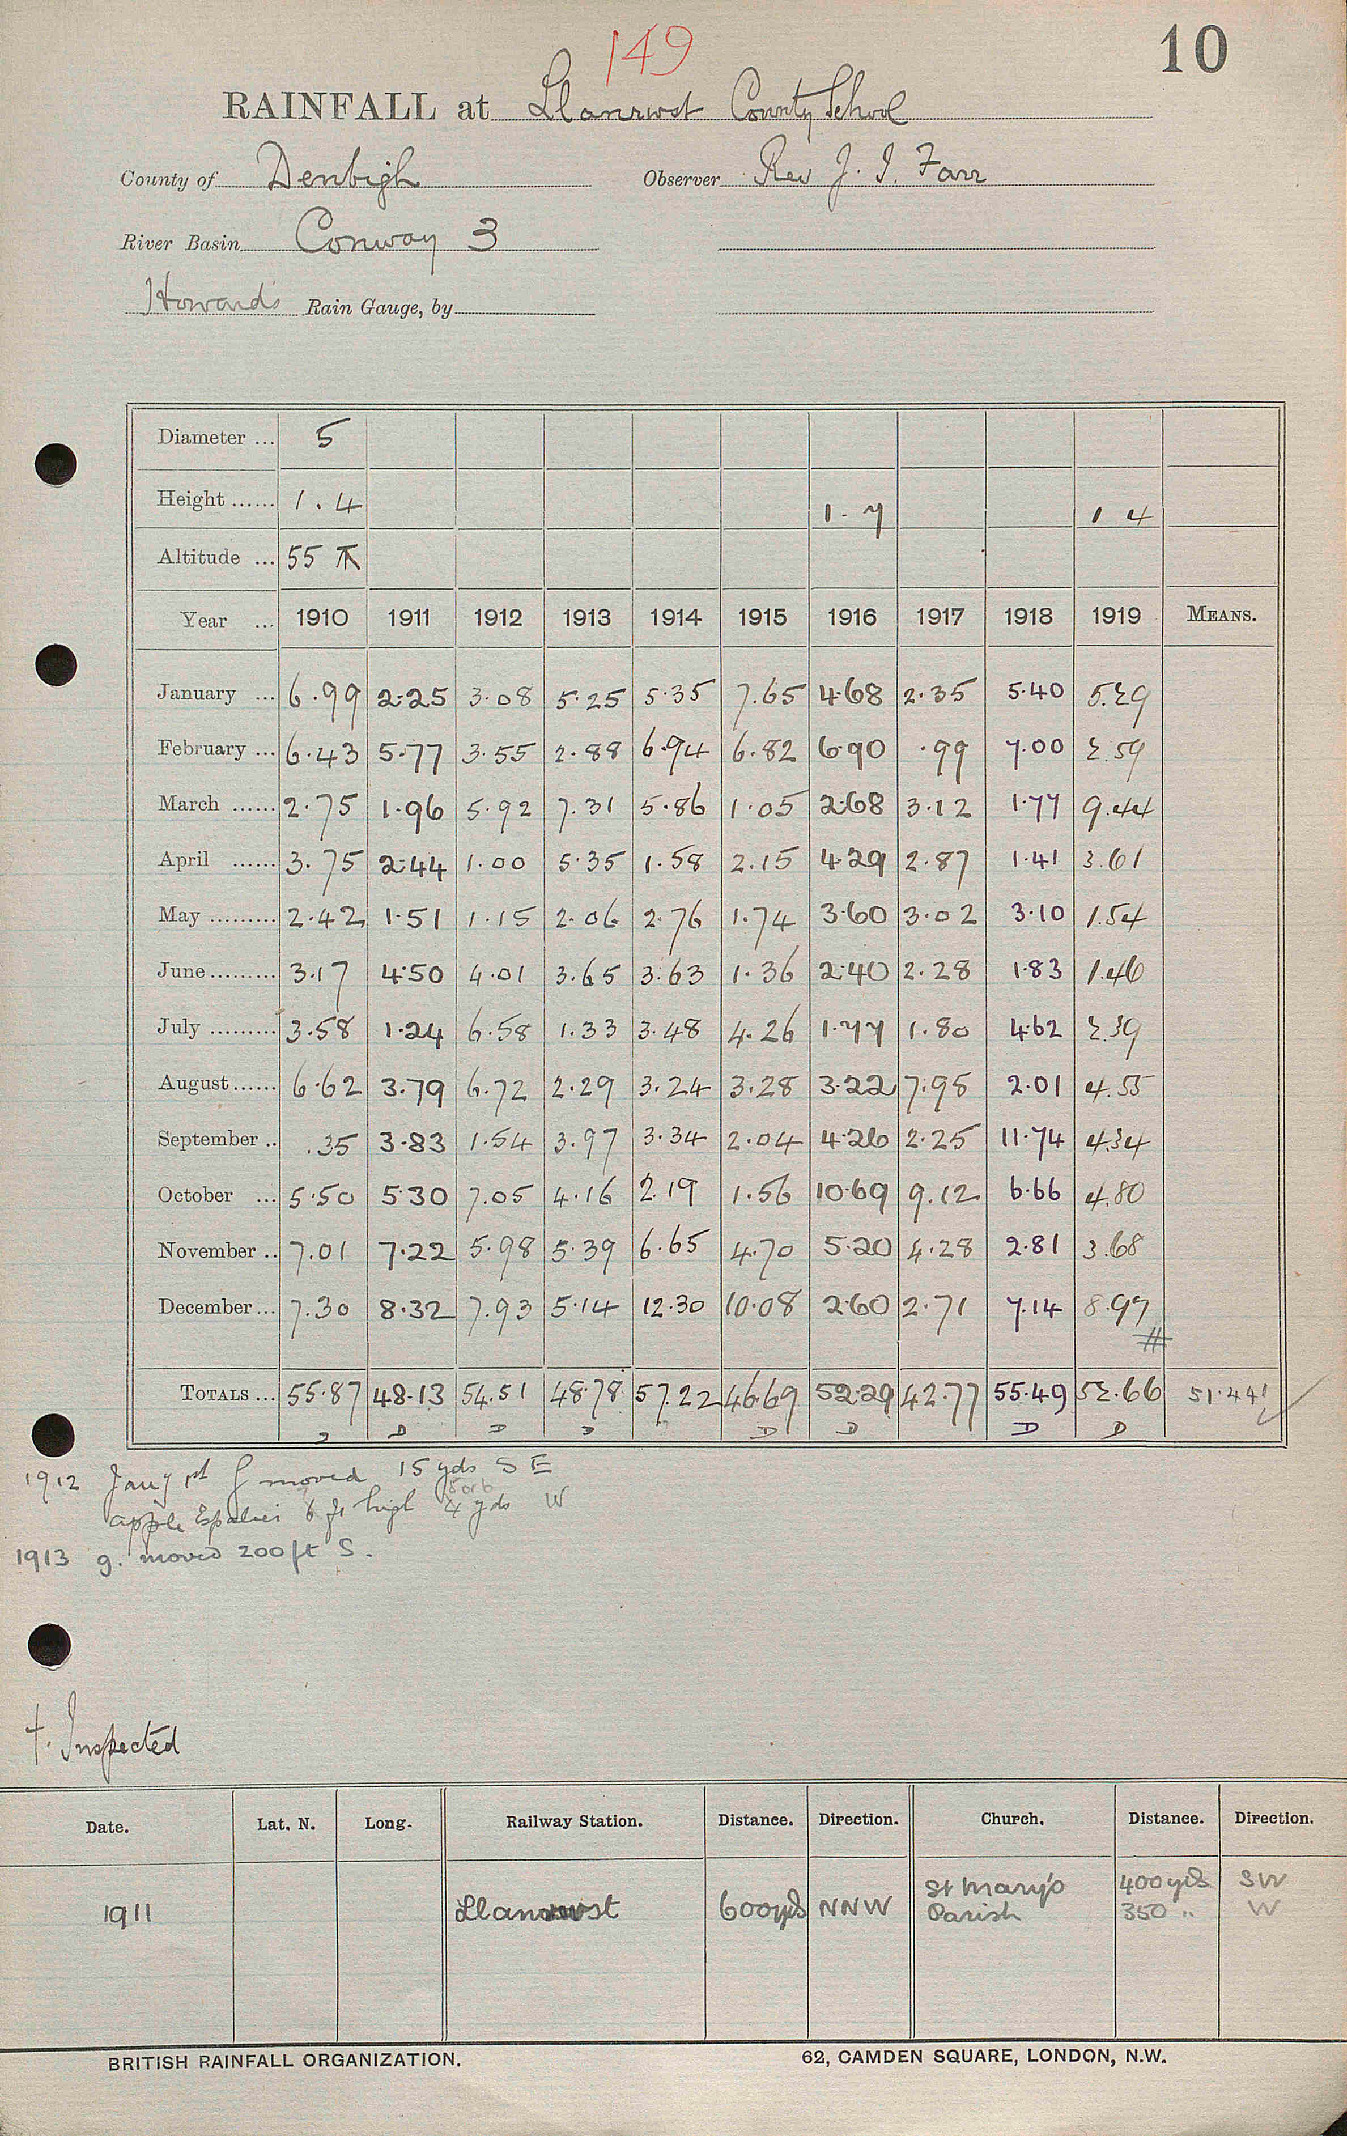 149
10
RAINFALL at Llanrwst County School
County of Denbigh Observer Rev J. I. Farr
River Basin Conway 3
Howard's Rain Gauge, by
Diameter ... 5
Height ...... 1.4 1.7 1 4
Altitude ... 55
Year ... 1910 1911 1912 1913 1914 1915 1916 1917 1918 1919 MEANS.
January ... 6.99 2.25 3.08 5.25 5.35 7.65 4.68 2.35 5.40 5.29
February ... 6.43 5.77 3.55 2.88 6.94 6.82 6.90 .99 7.00 2.59
March ...... 2.75 1.96 5.92 7.31 5.86 1.05 2.68 3.12 1.77 9.44
April ...... 3.75 2.44 1.00 5.35 1.58 2.15 4.29 2.87 1.41 3.61
May ......... 2.42 1.51 1.15 2.06 2.76 1.74 3.60 3.02 3.10 1.54
June ......... 3.17 4.50 4.01 3.65 3.63 1.36 2.40 2.28 1.83 1.46
July ......... 3.58 1.24 6.58 1.33 3.48 4.26 1.77 1.80 4.62 2.39
August ...... 6.62 3.79 6.72 2.29 3.24 3.28 3.22 7.98 2.01 4.55
September .. .35 3.83 1.54 3.97 3.34 2.04 4.26 2.25 11.74 4.34
October ... 5.50 5.30 7.05 4.16 2.19 1.56 10.69 9.12 6.66 4.80
November .. 7.01 7.22 5.98 5.39 6.65 4.70 5.20 4.28 2.81 3.68
December ... 7.30 8.32 7.93 5.14 12.30 10.08 2.60 2.71 7.14 8.97
TOTALS ... 55.87 48.13 54.51 48.78 57.22 46.69 52.29 42.77 55.49 52.66 51.441
D D D D D D D D
1912 Jany 1st g moved 15 yds SE
5 or 6
apple Espalier 6 ft high 4 yds W
1913 g. moved 200 ft S.
†. Inspected
Date. Lat. N. Long. Railway Station. Distance. Direction. Church. Distance. Direction.
1911 Llanrwst 600 yds NNW St Mary's 400 yds SW
Parish 350 " W
BRITISH RAINFALL ORGANIZATION. 62, CAMDEN SQUARE, LONDON, N.W.